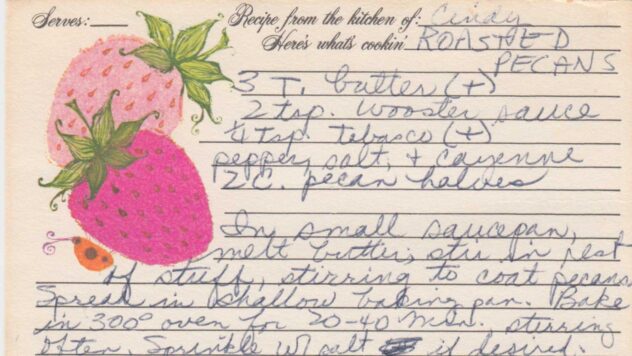 Serves: ___ Recipe from the kitchen of: Cindy
Here's what's cookin' ROASTED
PECANS
3 T. butter (+)
2 tsp. wooster sauce
1/4 tsp. tabasco (+)
pepper, salt, + cayenne
2 C. pecan halves
In small saucepan,
melt butter, stir in rest
of stuff, stirring to coat pecans
Spread in shallow baking pan. Bake
in 300° oven for 20-40 min. stirring
often. Sprinkle w/ salt if desired.